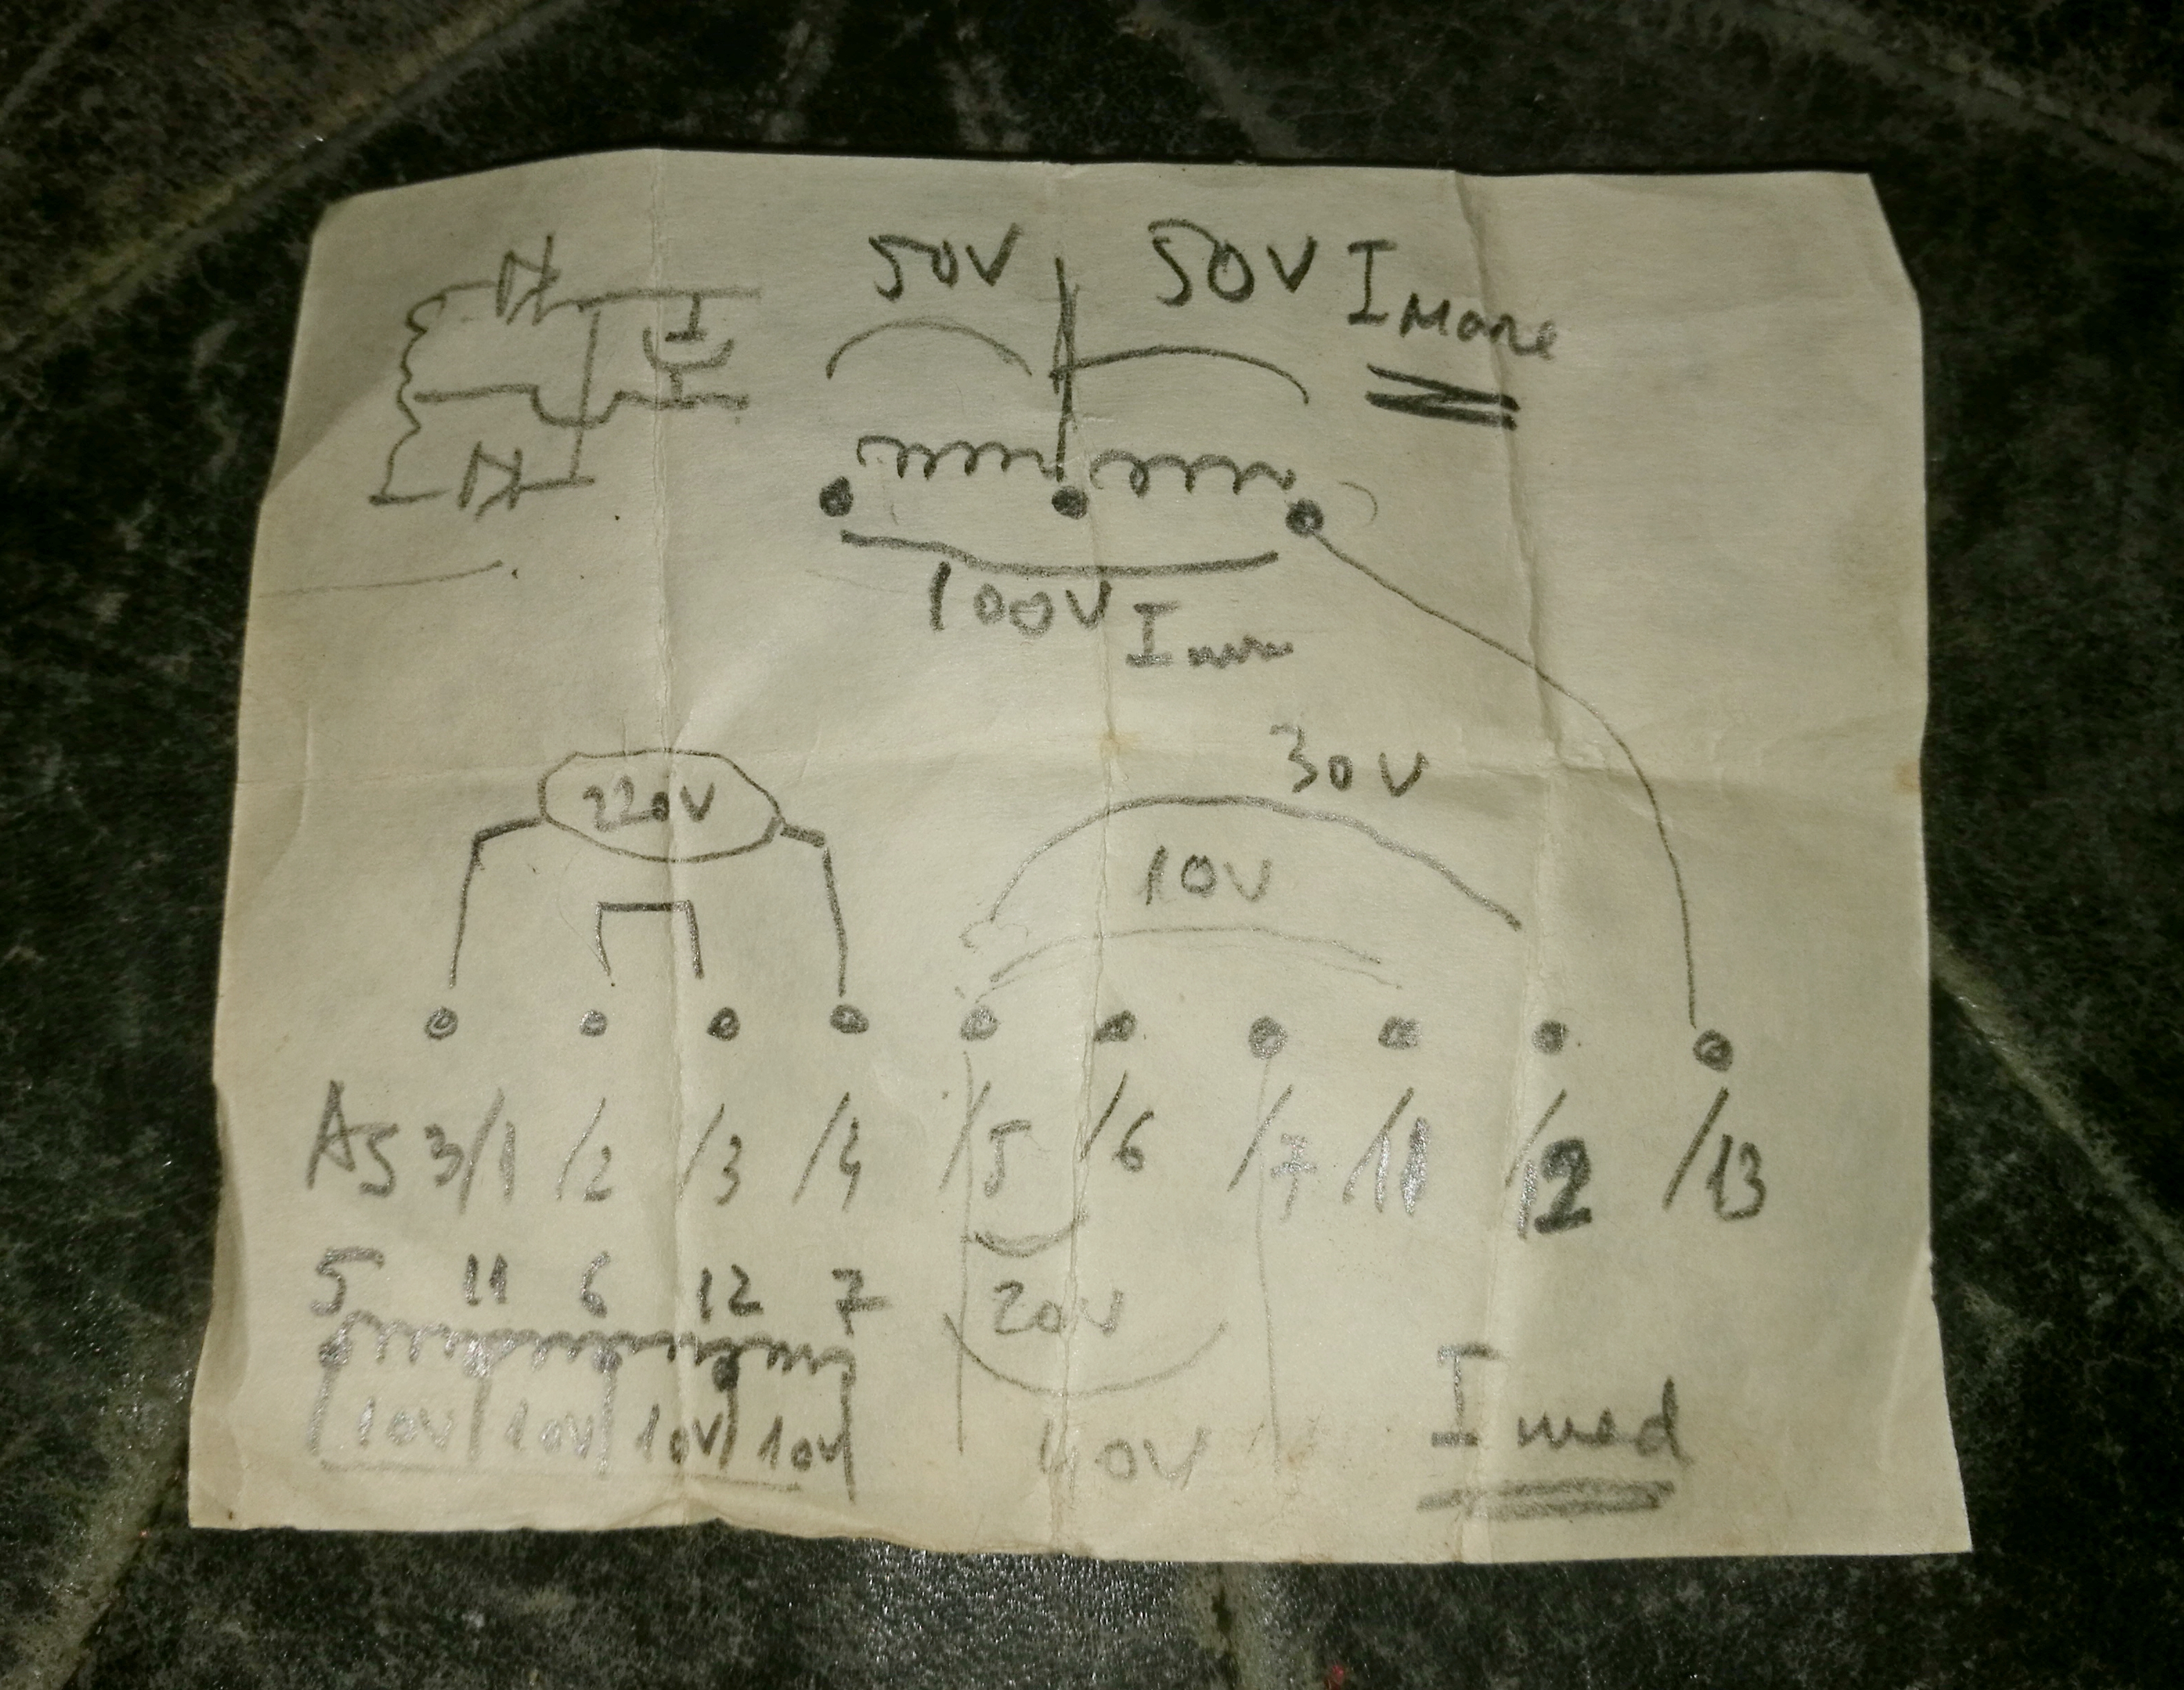 50V 50V I Mare
100V I
30V
220V
10V
AS 3/1 /2 /3 /4 /5 /6 /7 /11 /12 /13
5 11 6 12 7
20V
10V 10V 10V 10V
40V
I med